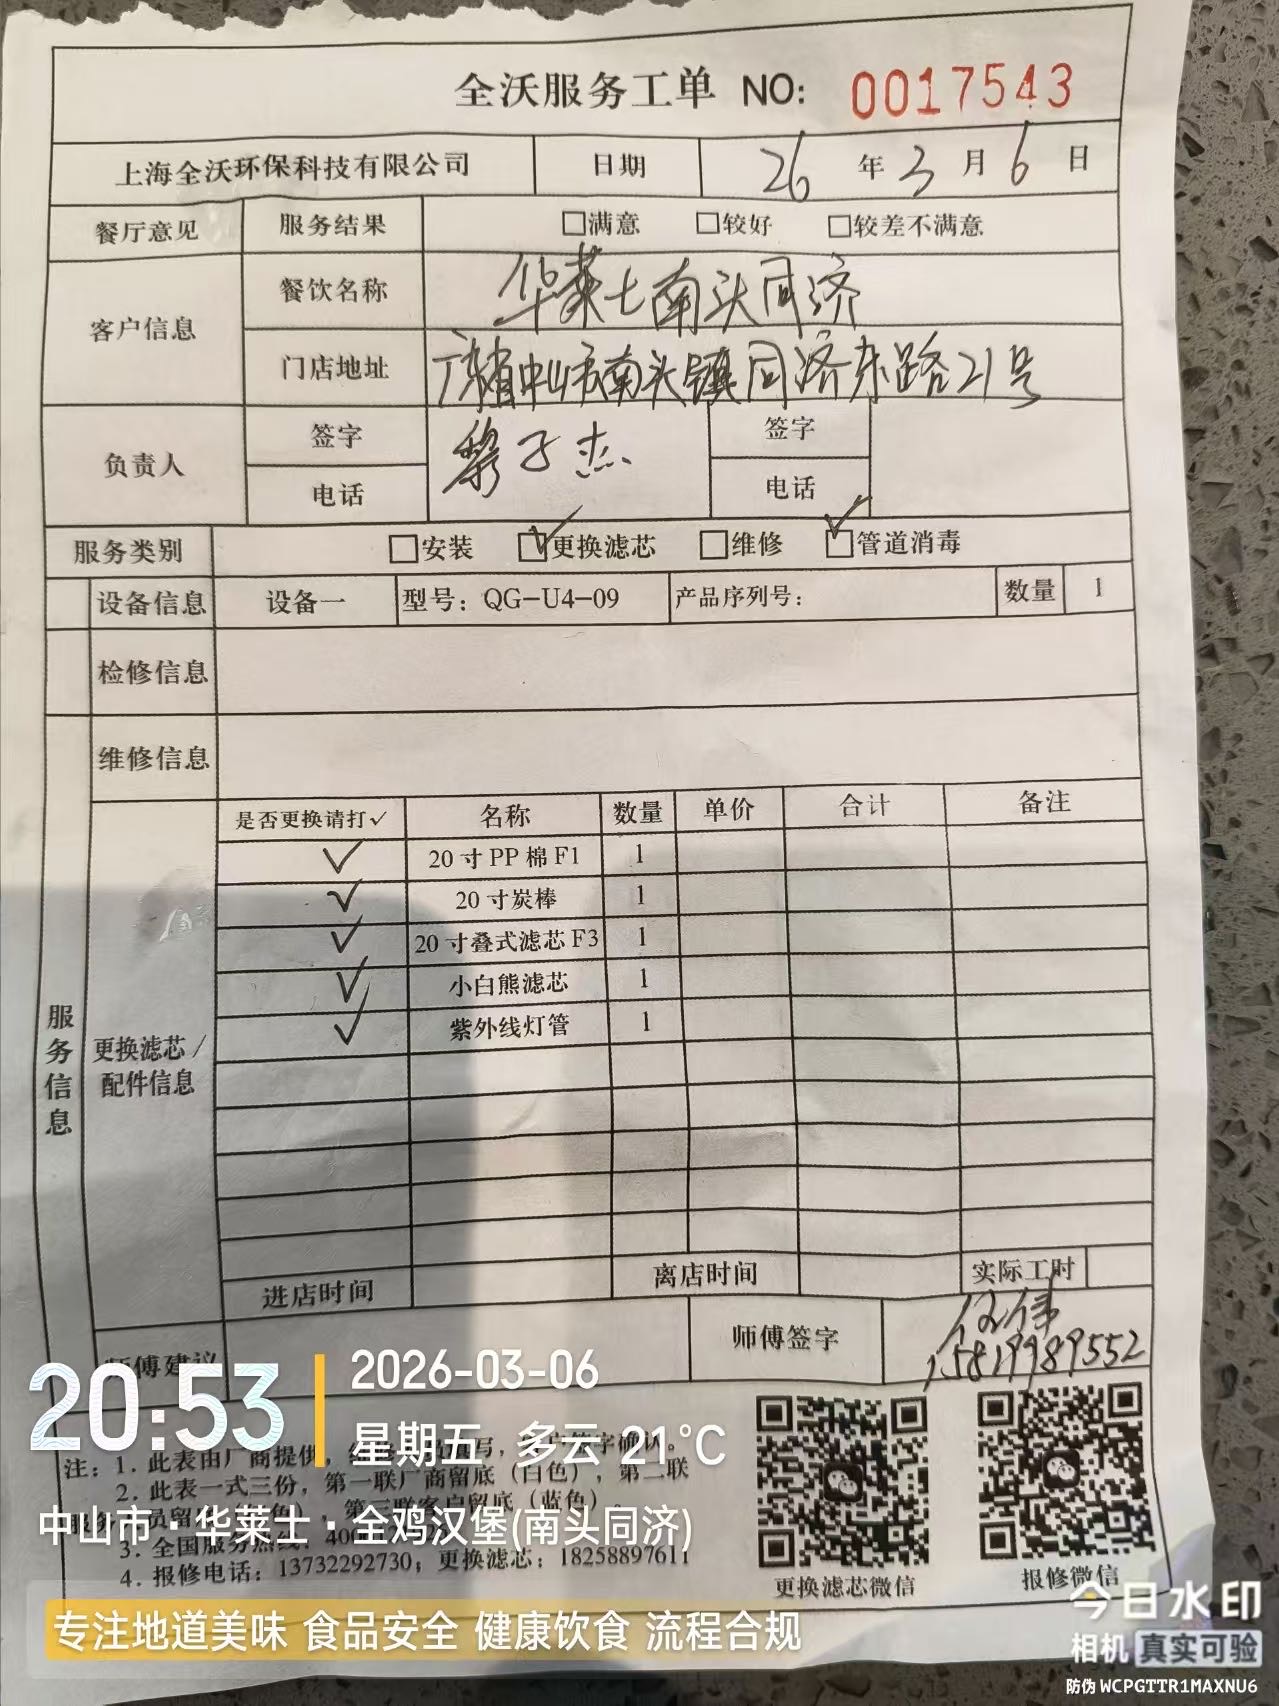 全沃服务工单 NO: 0017543
上海全沃环保科技有限公司 日期 26 年 3 月 6 日
餐厅意见 服务结果 □满意 □较好 □较差不满意
客户信息 餐饮名称 华莱士南头同济
门店地址 广东省中山市南头镇同济东路21号
负责人 签字 黎子杰 签字
电话 电话
服务类别 □安装 ☑更换滤芯 □维修 ☑管道消毒
设备信息 设备一 型号：QG-U4-09 产品序列号： 数量 1
检修信息
维修信息
服务信息
更换滤芯/配件信息
是否更换请打✓ 名称 数量 单价 合计 备注
✓ 20寸PP棉F1 1
✓ 20寸炭棒 1
✓ 20寸叠式滤芯F3 1
✓ 小白熊滤芯 1
✓ 紫外线灯管 1
进店时间 离店时间 实际工时
师傅建议 师傅签字 15819989552
20:53
2026-03-06
星期五 多云 21℃
注：1. 此表由厂商提供，
2. 此表一式三份，第一联厂商留底（白色），第二联
第三联客户留底（蓝色）。
中山市·华莱士·全鸡汉堡(南头同济)
3. 全国服务热线：
4. 报修电话：13732292730；更换滤芯：18258897611
更换滤芯微信
报修微信
专注地道美味 食品安全 健康饮食 流程合规
今日水印
相机 真实可验
防伪 WCPGTTR1MAXNU6